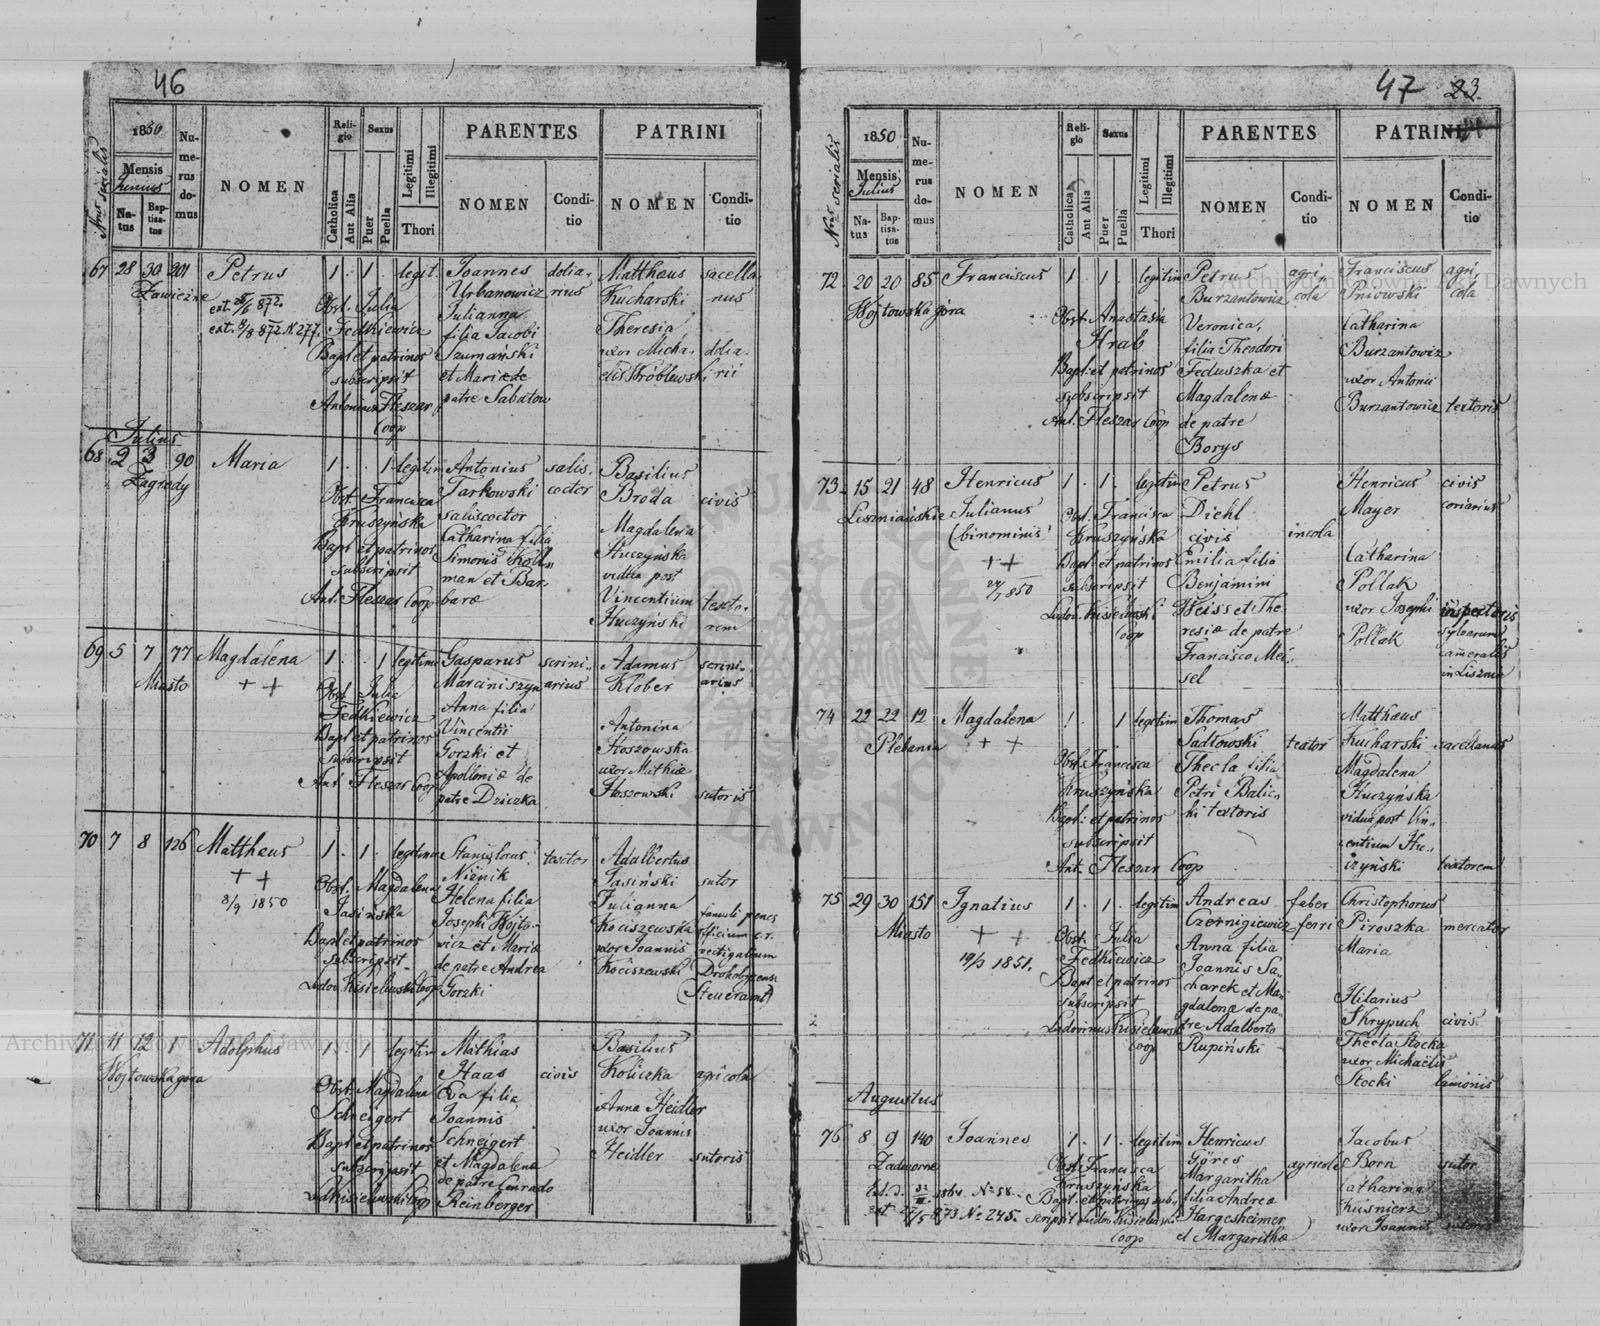 46
1850
Nrus serialis
Mensis
Junius
Natus
Baptisatus
Numerus domus
NOMEN
Religio
Catholica
Aut Alia
Sexus
Puer
Puella
Legitimi
Illegitimi
Thori
PARENTES
NOMEN
Conditio
PATRINI
NOMEN
Conditio
67 28 30 201 Petrus 1 . 1 . legit. Joannes dolia- Mattheus sacella-
Zawieźne Urbanowicz rius Kucharski nus
ext. 25/6 872. Obst. Julia Julianna
ext. 9/8 872. N 277. Fedkiewicz filia Jacobi Theresia
Bapt et patrinos Szumański uxor Micha- dolia-
subscripsit et Mariæ de elis Wróblewski rii
Antonius Fleszar patre Sabatow
Coop
Julius
68 2 3 90 Maria 1 . . 1 legitim Antonius salis- Basilius
Zagrody Tarkowski coctor Broda civis
Obst. Francisca saliscoctor
Kruszyńska Catharina filia Magdalena
Bapt et patrinos Simonis Koll- Huczyńska
subscripsit man et Bar- vidua post
Ant. Fleszar Coop baræ Vincentium texto-
Huczyński rem
69 5 7 77 Magdalena 1 . . 1 legitim Gasparus scrini- Adamus scrini-
Miasto + + Marciniszyn arius Klober arius
Obst. Julia Anna filia
Fedkiewicz Vincentii Antonina
Bapt et patrinos Gorzki et Stoszowska
subscripsit Apolloniæ de uxor Mathiæ
Ant Fleszar Coop patre Dziczka Stoszowski sutoris
70 7 8 126 Mattheus 1 . 1 . legitim Stanislaus textor Adalbertus
+ + Niźnik Jasiński sutor
8/9 1850 Obst. Magdalena Helena filia Julianna
Jasińska Josephi Wojto- Kociszewska famuli penes
Bapt et patrinos wicz et Mariæ uxor Joannis officium c.r.
subscripsit de patre Andrea Kociszewski vectigalium
Ludov. Kisielewski Coop Gorzki Drohobycense
(Steueramt)
71 11 12 1 Adolphus 1 . 1 . legitim Mathias Basilius
Wojtowska gora Haas civis Koliczka agricola
Obst. Magdalena Eva filia
Schneigert Joannis Anna Heidler
Bapt et patrinos Schneigert uxor Joannis
subscripsit et Magdalena Heidler sutoris
de patre Conrado
Lud Kisielewski Coop Reinberger
47 23.
1850
Nrus serialis
Mensis
Julius
Natus
Baptisatus
Numerus domus
NOMEN
Religio
Catholica
Aut Alia
Sexus
Puer
Puella
Legitimi
Illegitimi
Thori
PARENTES
NOMEN
Conditio
PATRINI
NOMEN
Conditio
72 20 20 85 Franciscus 1 . 1 . legitim Petrus agri- Franciscus agri-
Wojtowska góra Burzantowicz cola Pniowski cola
Obst. Anastasia Veronica,
Hrab filia Theodori Catharina
Bapt: et patrinos Feduszka et Burzantowicz
subscripsit Magdalenæ uxor Antonii
Ant. Fleszar Coop de patre Burzantowicz textoris
Borys
73 15 21 48 Henricus 1 . 1 . legitim Petrus Henricus civis
Liszniańskie Julianus Diehl Mayer coriarius
(binominis) Obst. Francisca civis incola
+ + Kruszyńska Emilia filia Catharina
24/7 850 Bapt: et patrinos Benjamini Pollak
subscripsit Weiss et The- uxor Josephi inspectoris
Ludov. Kisielewski resiæ de patre Pollak sylvarum
Coop Francisco Mei- cameralis
sel in Lisznia
74 22 22 12 Magdalena 1 . . 1 legitim Thomas Mattheus
Plebania + + Sadłowski textor Kucharski sacellanus
Obst. Francisca Thecla filia Magdalena
Kruszyńska Petri Balic- Huczyńska
Bapt: et patrinos ki textoris vidua post Vin-
subscripsit centium Hu-
Ant. Fleszar Coop czyński textorem
75 29 30 151 Ignatius 1 . 1 . legitim Andreas faber Christophorus
Miasto + + Czernigiewicz ferri Piroszka mercator
19/3 1851. Obst. Julia Anna filia Maria
Fedkiewicz Joannis Sa-
Bapt et patrinos charek et Ma- Hilarius
subscripsit gdalenæ de pa- Skrypuch civis
Ludovicus Kisielewski tre Adalberto Thecla Stocka
Coop Rupiński uxor Michaelis
Stocki lanionis
Augustus
76 8 9 140 Joannes 1 . 1 . legitim Henricus Jacobus
Zadworne Göres agricola Born sutor
Obst. Francisca Margaritha Catharina
Kruszyńska filia Andreæ Kusnierz
Nº 58. Bapt. et patrinos sub- Hargesheimer uxor Joannis sutoris
873 Nº 245. scripsit Ludov Kisielewski et Margarithæ
Coop